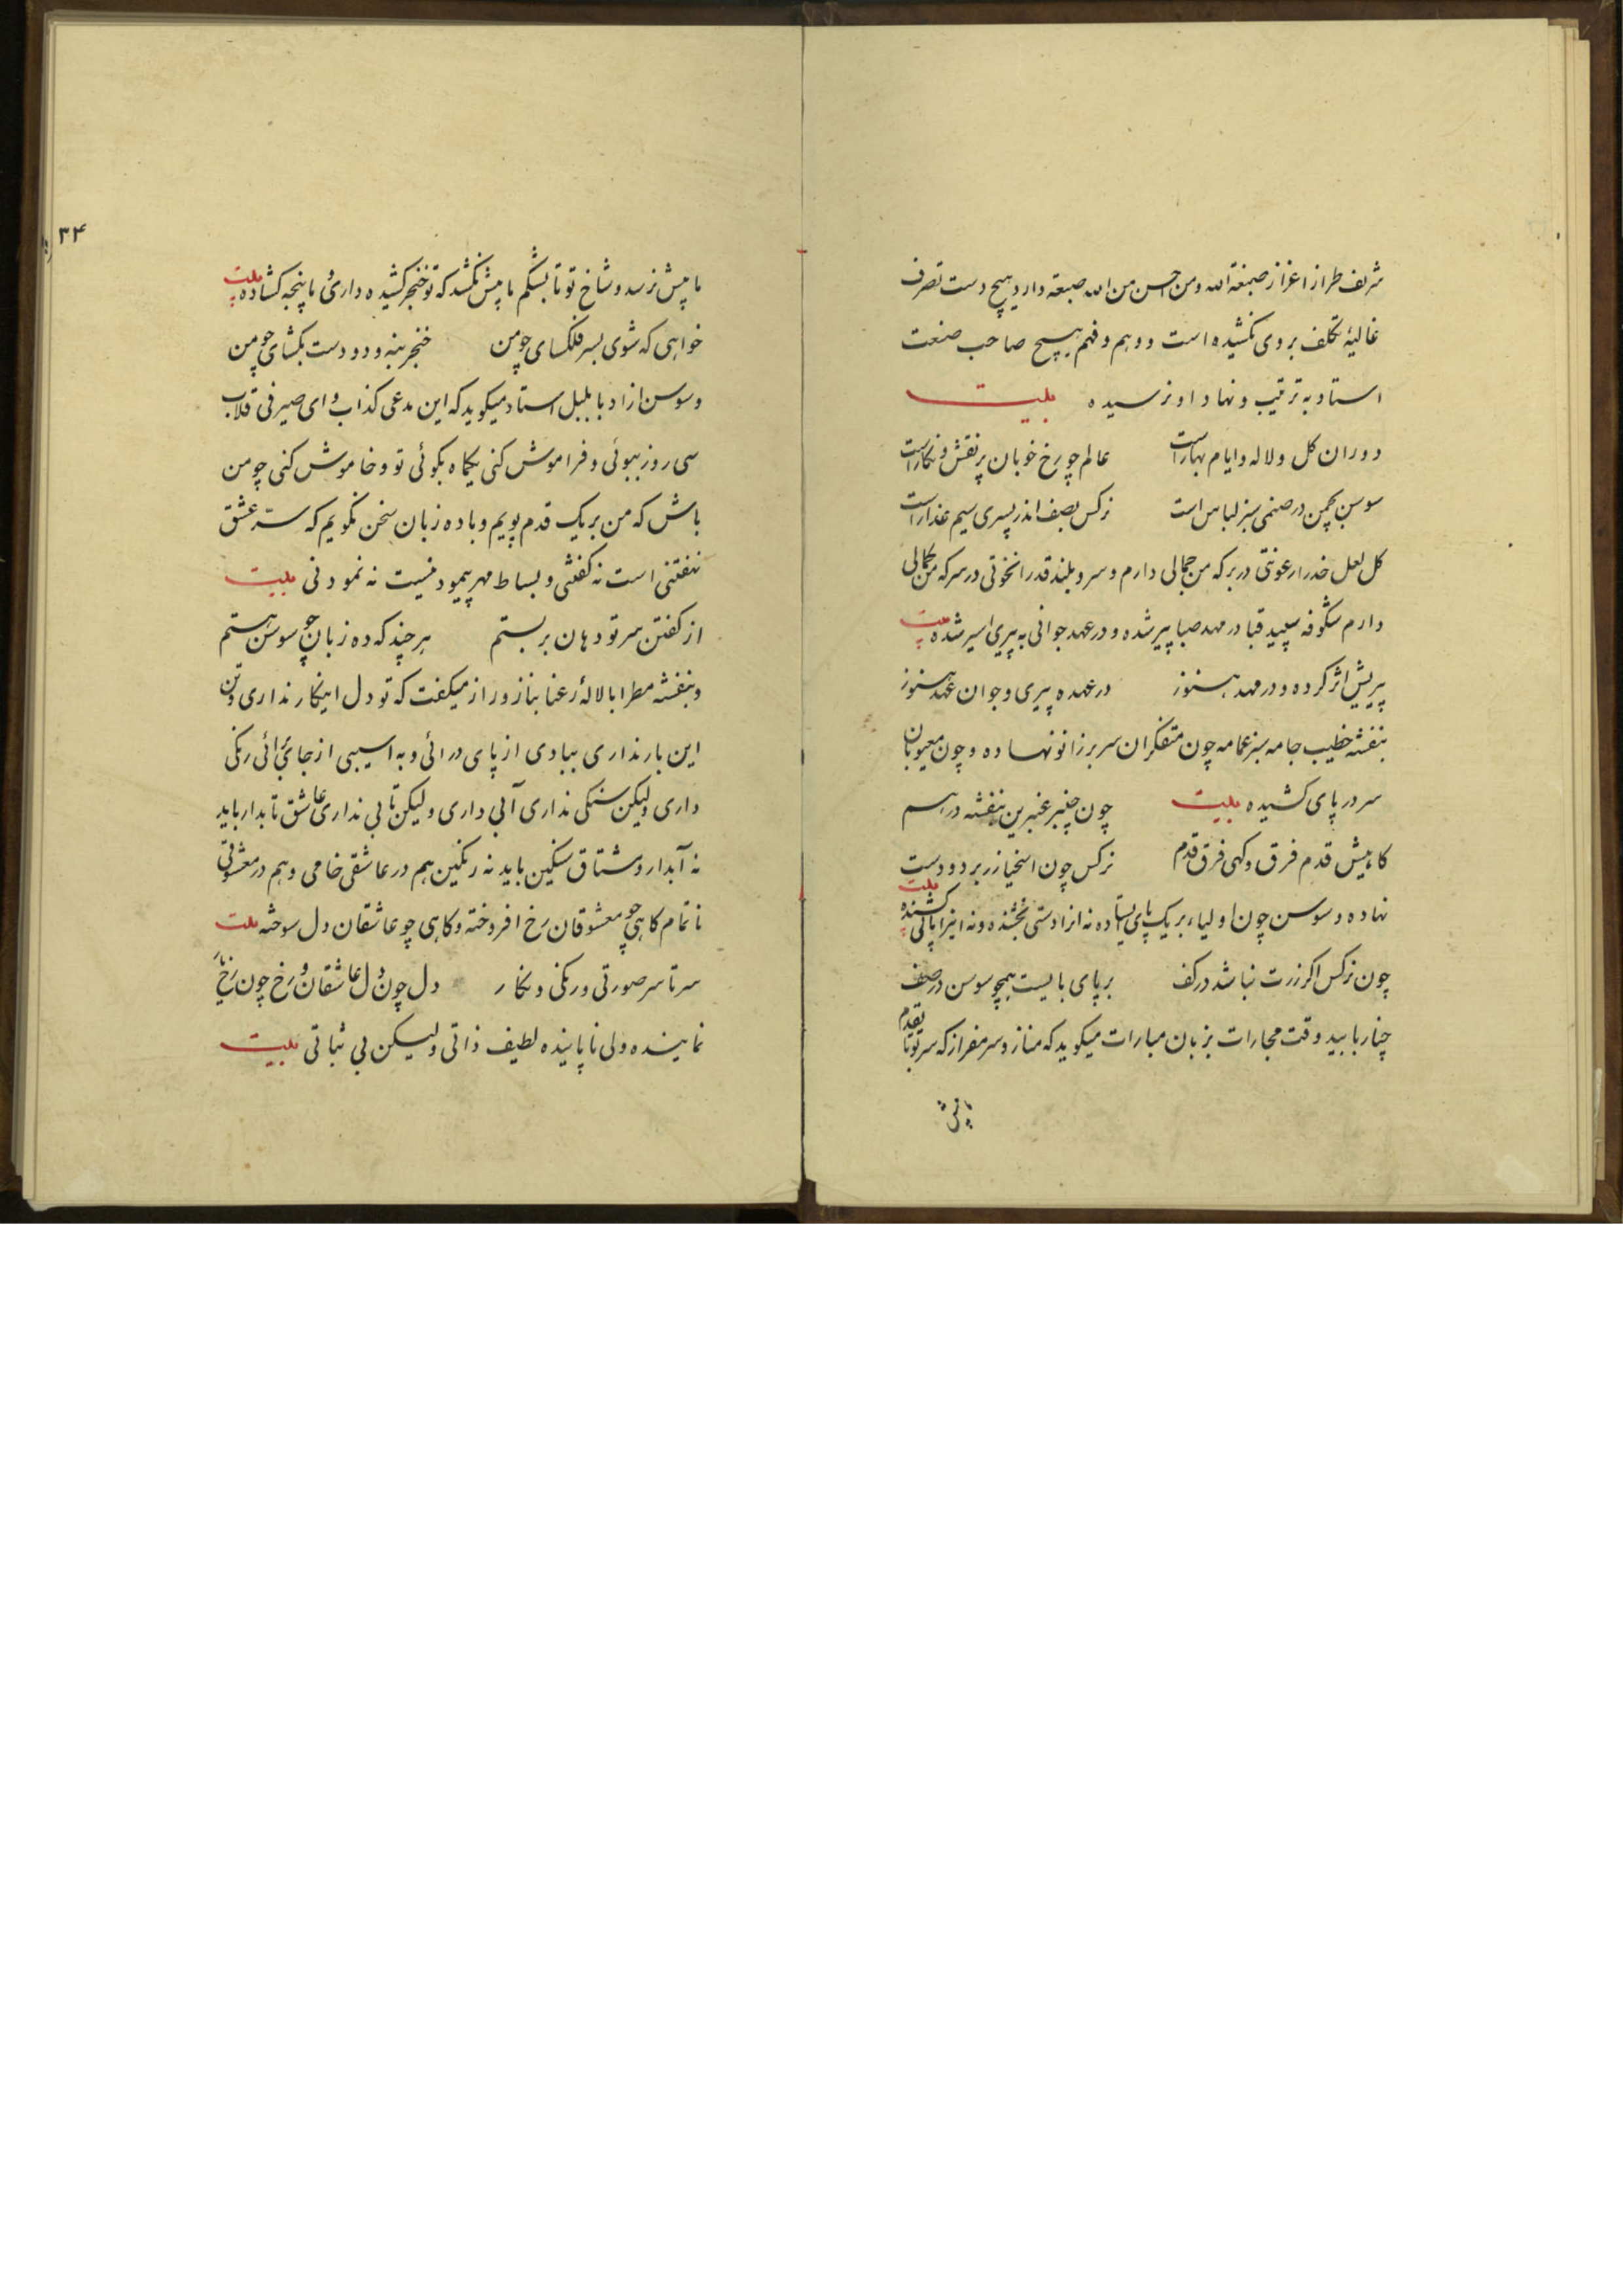 شریف طراز اعزاز صبغة الله و من احسن من الله صبغة دارد هیچ دست تصرف
غالیهٔ تکلف بروی نکشیده است و وهم و فهم هیچ صاحب صنعت
استاد به ترتیب و نهاد او نرسیده بیت
دوران کل و لاله و ایام بهار است عالم چو رخ خوبان پر نقش و نکار است
سوسن بچمن در صنمی سبز لباس است نرکس بصف اندر پسری سیم عذار است
کل لعل خد را رعونتی در بر که من جمالی دارم و سرو بلند قد را نخوتی در سر که من کمالی
دارم شکوفه سپید قبا در مهد صبا پیر شده و در عهد جوانی به پیری اسیر شده بیت
پیریش اثر کرده و در مهد هنوز در عهده پیری و جوان عهد هنوز
بنفشه خطیب جامه سبز عمامه چون متفکران سر بر زانو نهاده و چون معیوبان
سر در پای کشیده بیت چون چنبر عنبرین بنفشه در هم
کاهیش قدم فرق و کهی فرق قدم نرکس چون اسخیا زر بر دو دست
نهاده و سوسن چون اولیاء بر یک پای ایستاده نه انرا دستی بخشنده و نه اینرا پائی کشنده بیت
چون نرکس اکر زرت نباشد در کف بر پای بایست همچو سوسن در صف
چنار با بید وقت مجارات بزبان مبارات میکوید که مناز و سر مفراز که سر تو تا بقدم
ما پیش
۳۴
ما پیش نرسد و شاخ تو تا بشکم ما پیش نکشد که تو خنجر کشیده داری و ما پنجه کشاده بیت
خواهی که شوی بسر فلکسای چو من خنجر بنه و دو دست بکشای چو من
و سوسن ازاد با بلبل استاد میکوید که این مدعی کذاب و ای صیرفی قلاب
سی روز ببوئی و فراموش کنی یکماه بکوئی تو و خاموش کنی چو من
باش که من بر یک قدم پویم و با ده زبان سخن نکویم که سرّ عشق
نهفتنی است نه کفتنی و بساط مهر پیمودنیست نه نمودنی بیت
از کفتن سر تو دهان بر بستم هر چند که ده زبان چو سوسن هستم
و بنفشه مطرا با لالهٔ رعنا بناز و راز میکفت که تو دل اینکار نداری و تن
این بار نداری ببادی از پای درائی و به اسیبی از جای برائی رنکی
داری ولیکن سنکی نداری آبی داری ولیکن تابی نداری عاشق تابدار باید
نه آبدار و مشتاق سنکین باید نه رنکین هم در عاشقی خامی و هم در معشوقی
ناتمام کاهی چو معشوقان رخ افروخته و کاهی چو عاشقان دل سوخته بیت
سر تا سر صورتی و رنکی و نکار دل چون دل عاشقان و رخ چون رخ یار
نماینده ولی ناپاینده لطیف ذاتی ولیکن بی ثباتی بیت